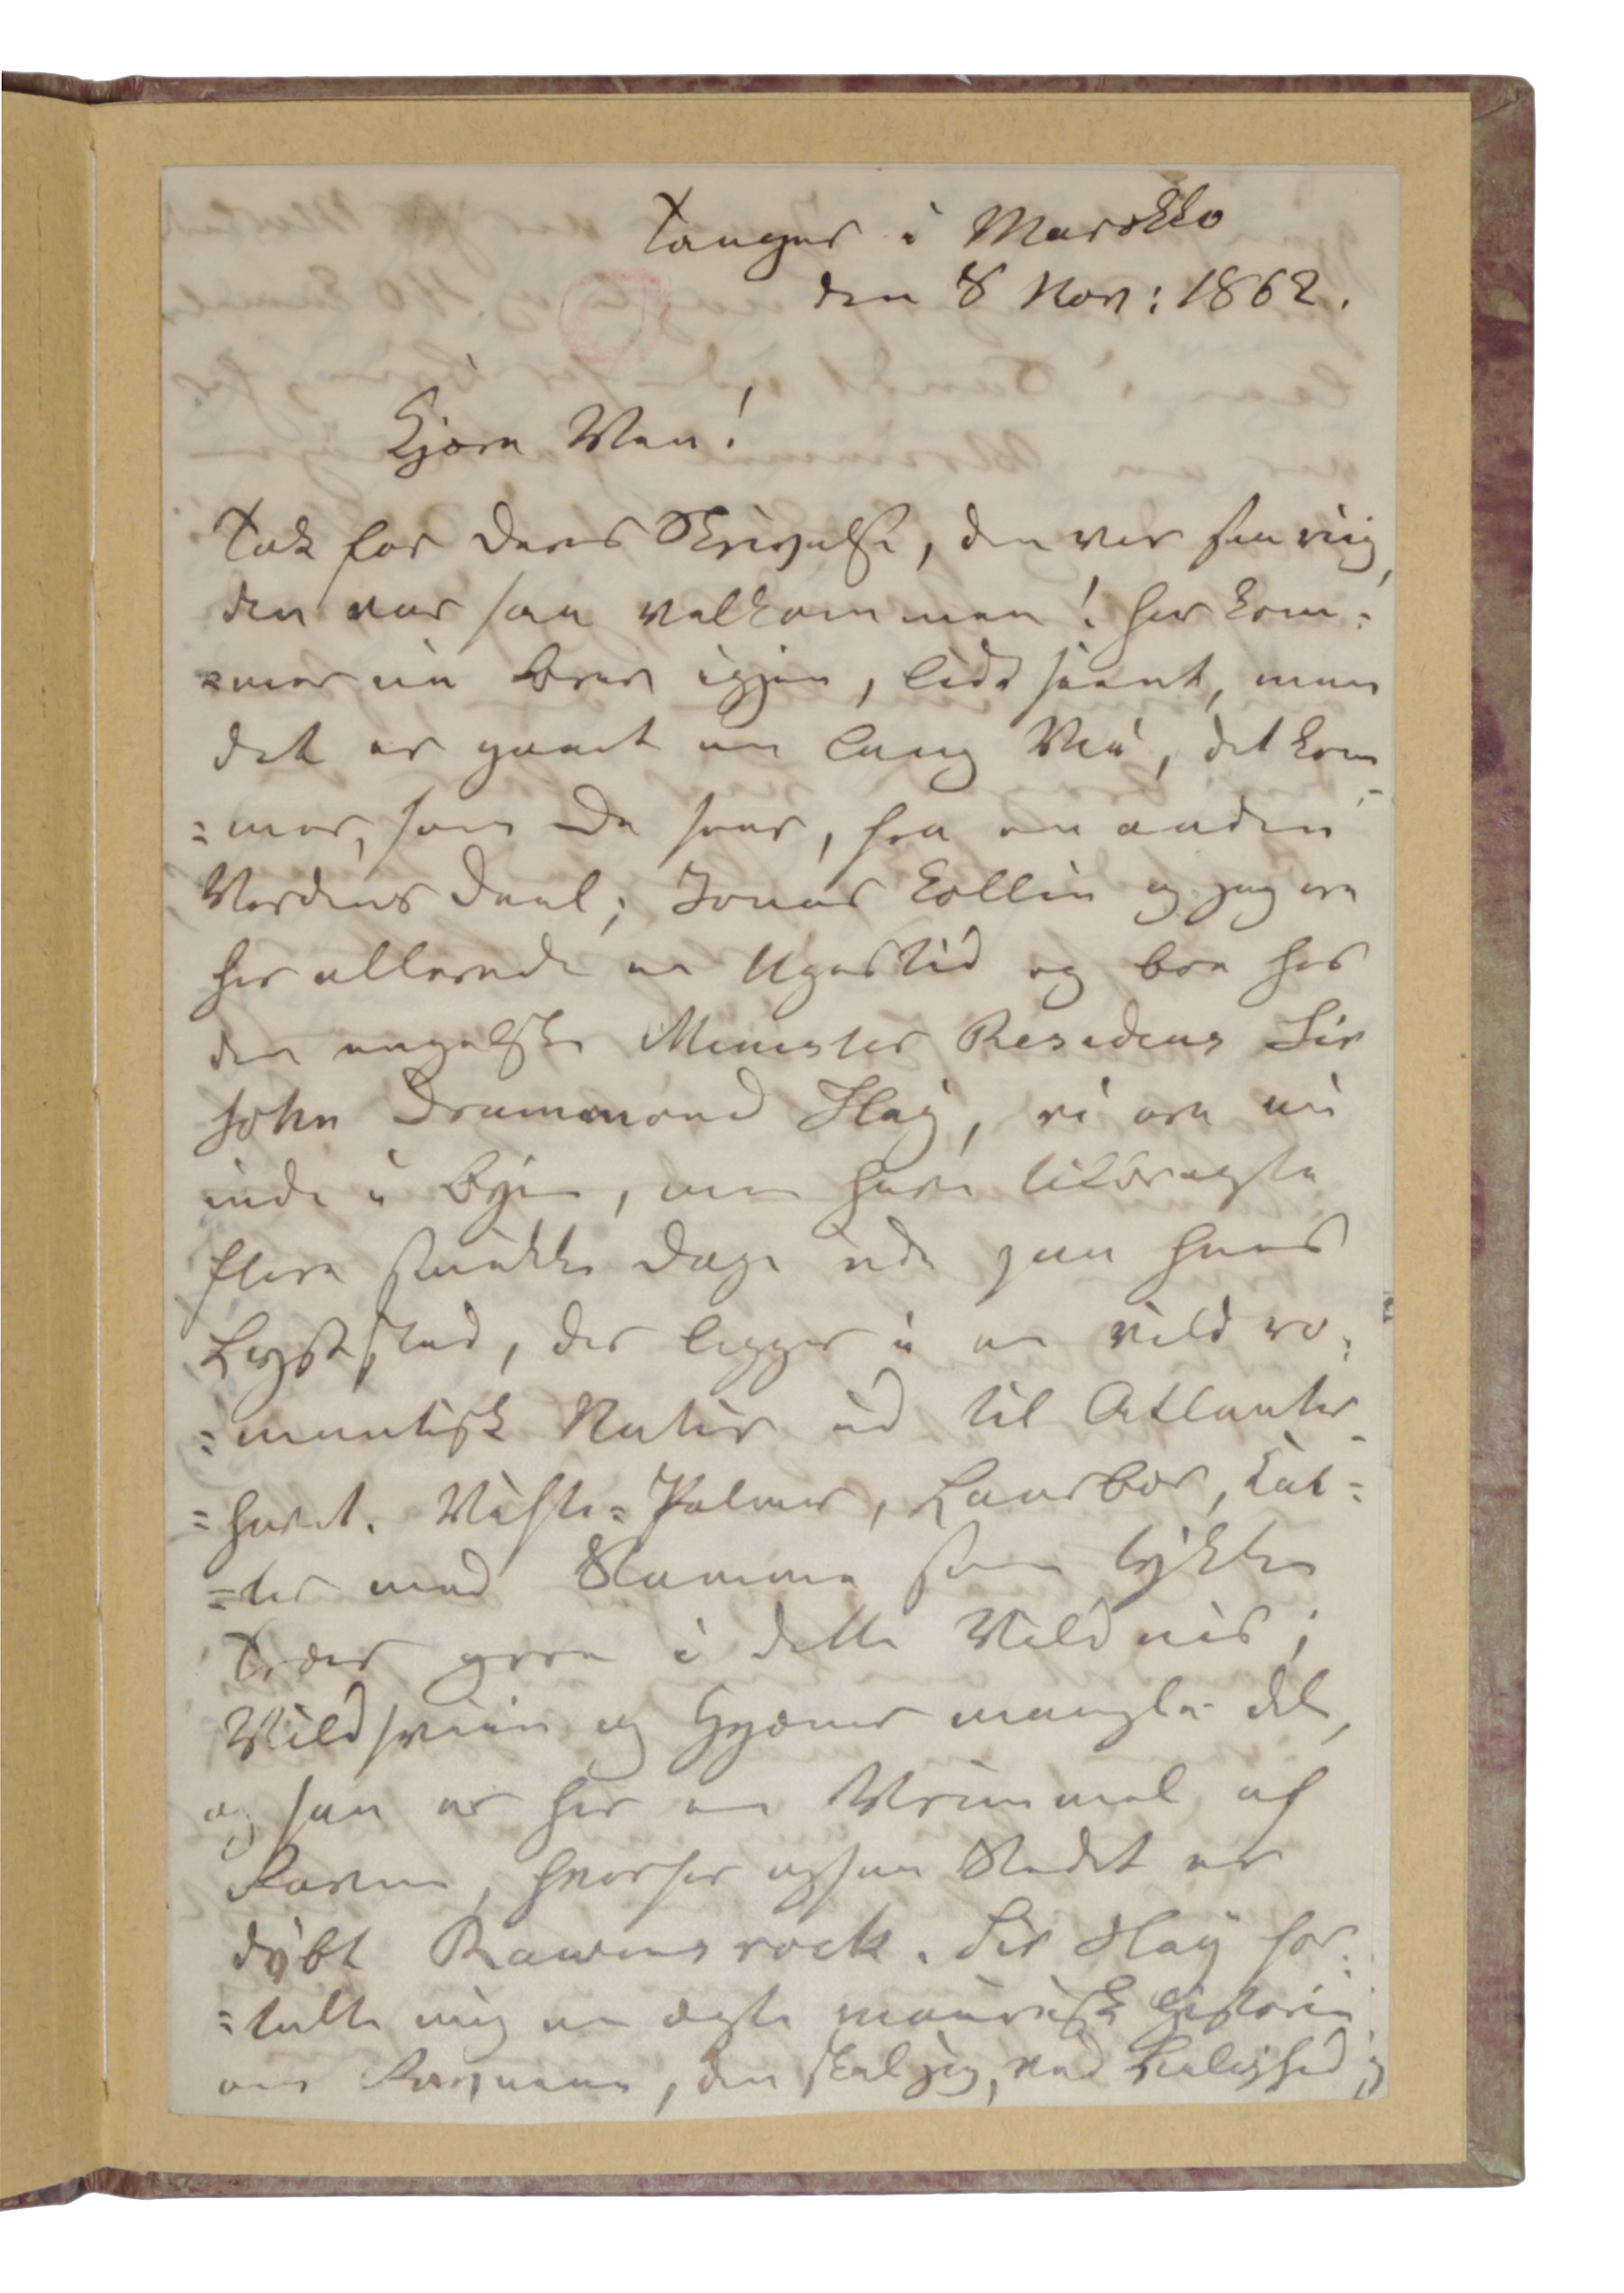 Tanger i Marokko
den 8 Nov: 1862.
Kjære Ven!
Tak for Deres Skrivelse, den var saa riig,
den var saa velkommen! her kom-
=mer nu Brev igjen, lidt seent, men
det er gaaet en lang Vei, det kom-
=mer, som De seer, fra en anden
Verdens Deel; Jonas Collin og jeg ere
her allerede en Ugestid og boe hos
den engelske Minister Residens Sir
John Drummond Hay, vi ere nu
inde i Byen, men have tilbragte
flere smukke Dage ude paa hans
Lyststed, der ligger i en vild ro-
=mantisk Natur ud til Atlanter-
=havet. Vifte=Palmer, Laurbær, Cac-
=ter med Stamme som tykke
Træer groe i dette Vildnis;
Vildsviin og Hyæner mangle ikke,
og saa er her en Vrimmel af
Ravne, hvorfor ogsaa Stedet er
døbt Rawensrock. Sir Hay for-
=talte mig en ægte maurisk Historie
om Ravnene, den skal jeg, ved Leilighed,